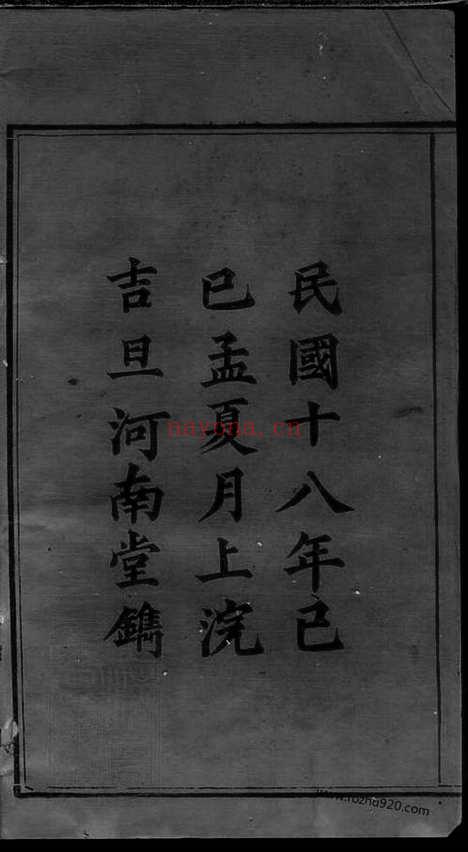 民國十八年己
巳孟夏月上浣
吉旦河南堂鐫
nayona.cn
www.fozhu920.com